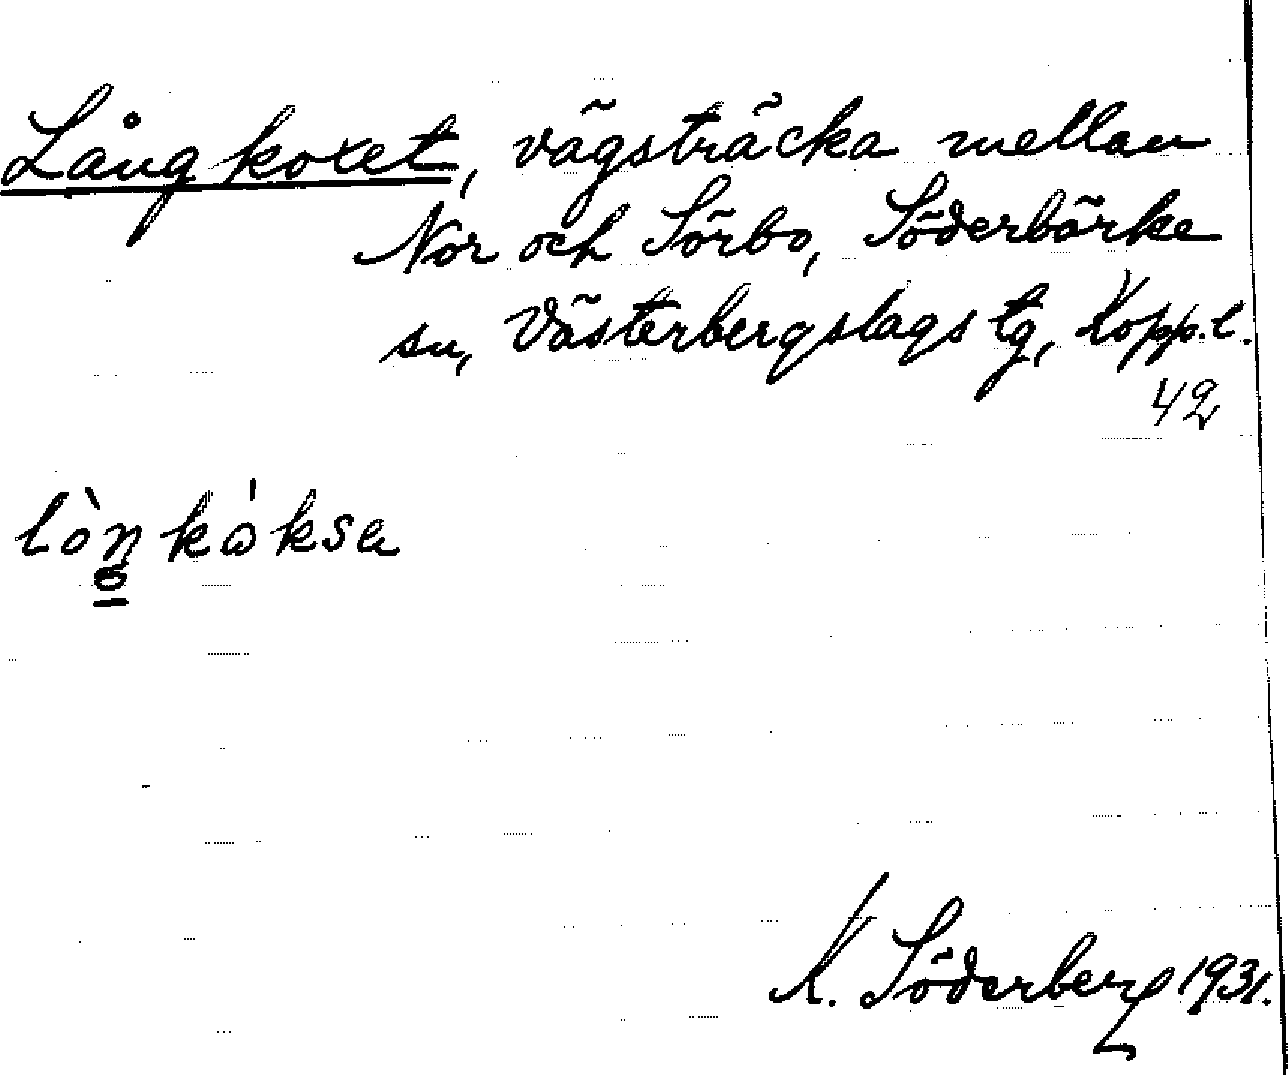 Långkoxet, vägsträcka mellan
Nor och Sörbo, Söderbärke
sn, Västerbergslags tg, Kopp.l.
42
lòŋkáksa
K. Söderberg 1931.